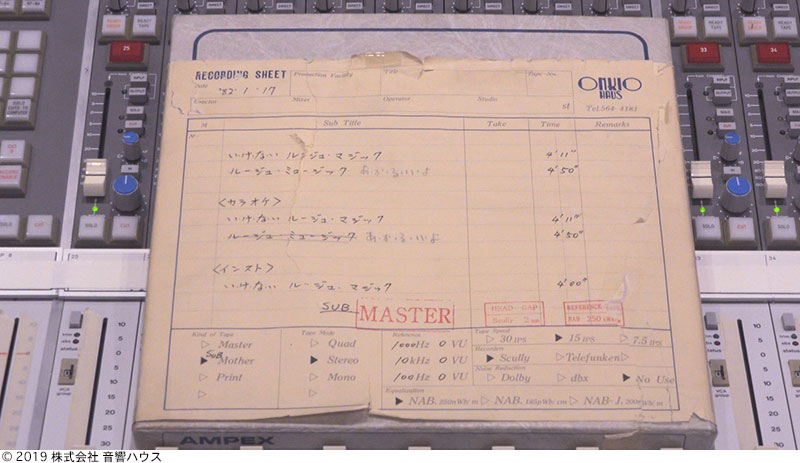 RECORDING SHEET Production Facility Title Tape No. ONKIO HAUS
Date '82. 1. 17
Executor Mixer Operator Studio st Tel.564-4181
M Sub Title Take Time Remarks
M
いけない ルージュ・マジック 4'11"
ルージュ・ミュージック あ・か・る・い・よ 4'50"
<カラオケ>
いけない ルージュ・マジック 4'11"
ルージュ・ミュージック あ・か・る・い・よ 4'50"
<インスト>
いけない ルージュ・マジック 4'00"
SUB MASTER HEAD GAP Scully 2 mm REFERENCE NAB 250
Kind of Tape Tape Mode Reference Tape Speed
▷ Master ▷ Quad 1000Hz 0 VU ▷ 30 IPS ▶ 15 IPS ▷ 7.5 IPS
Recorders
Sub
▶ Mother ▶ Stereo 10kHz 0 VU ▶ Scully ▷ Telefunken ▷
Noise Reduction
▷ Print ▷ Mono 100Hz 0 VU ▷ Dolby ▷ dbx ▶ No Use
Equalization
▷ ▷ ▶ NAB. ▷ NAB. ▷ NAB-1.
AMPEX
25
33
34
SOLO CUT
© 2019 株式会社 音響ハウス